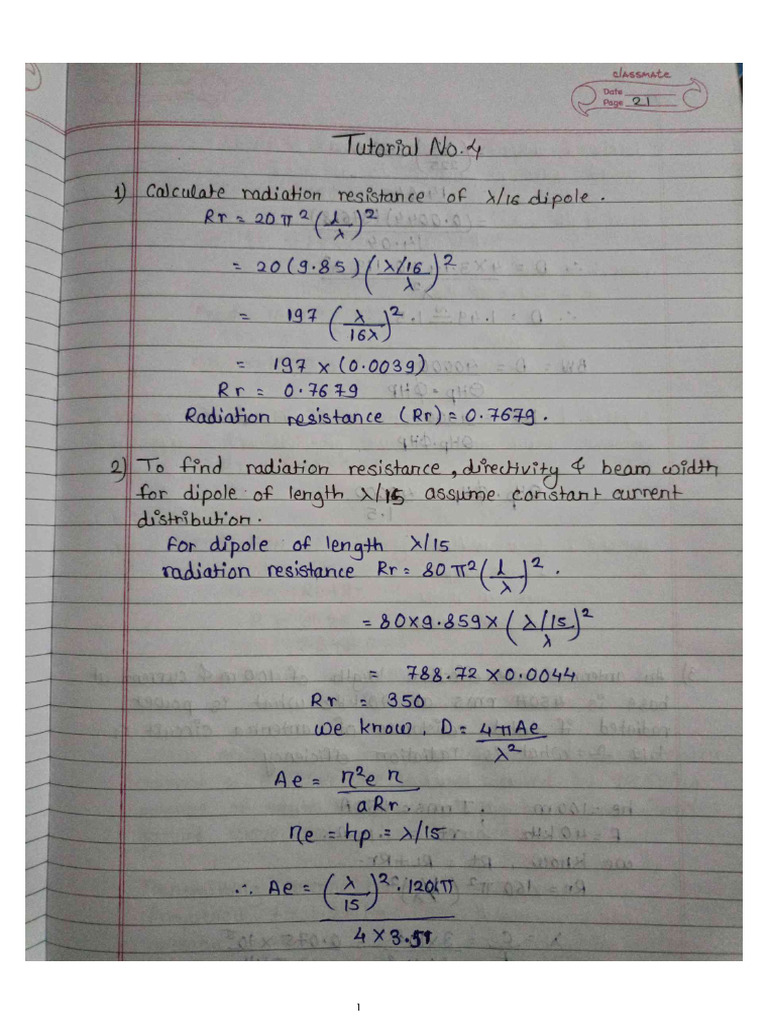 classmate
Date
Page 21
Tutorial No.4
1) Calculate radiation resistance of λ/16 dipole.
Rr = 20π² (l/λ)²
= 20(9.85) (λ/16/λ)²
= 197 (λ/16λ)²
= 197 × (0.0039)
Rr = 0.7679
Radiation resistance (Rr) = 0.7679.
2) To find radiation resistance, directivity & beam width
for dipole of length λ/15 assume constant current
distribution.
For dipole of length λ/15
radiation resistance Rr = 80π² (l/λ)².
= 80×9.859× (λ/15/λ)²
= 788.72 × 0.0044
Rr = 350
we know, D = 4πAe/λ²
Ae = η²e η/aRr.
ηe = hp = λ/15
∴ Ae = (λ/15)² · 120π/4 × 3.51
1